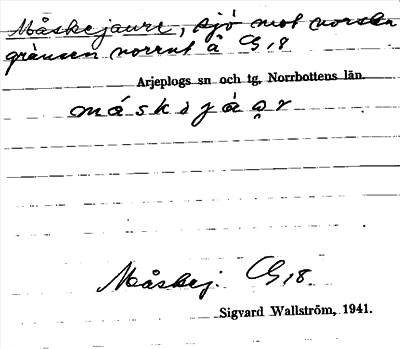 Måskejaure, sjö mot norska
gränsen norrut å G,8
Arjeplogs sn och tg, Norrbottens län.
máskəjáạr
Måskej. G,8.
Sigvard Wallström, 1941.